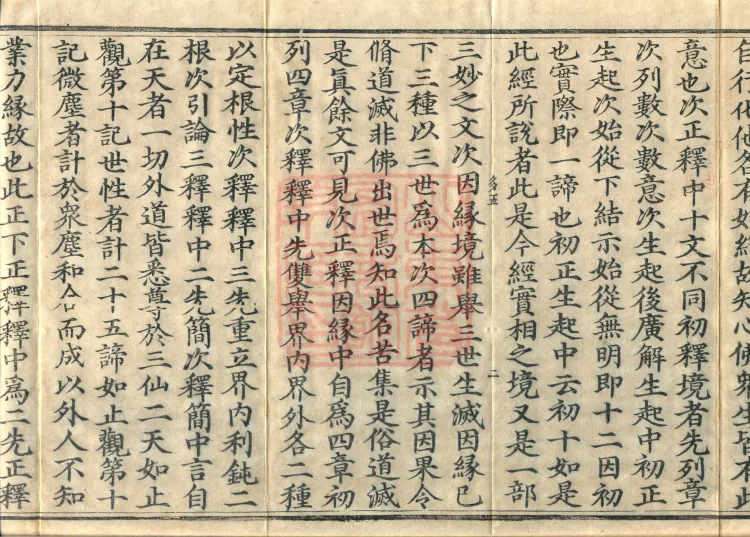 自行化他各有始終故知心佛衆生皆有此
意也次正釋中十文不同初釋境者先列章
次列數次數意次生起後廣解生起中初正
生起次始從下結示始從無明即十二因初
也實際即一諦也初正生起中云初十如是
此經所說者此是今經實相之境又是一部
三妙之文次因緣境雖舉三世生滅因緣已
下三種以三世爲本次四諦者示其因果令
脩道滅非佛出世焉知此名苦集是俗道滅
是眞餘文可見次正釋因緣中自爲四章初
列四章次釋釋中先雙舉界內界外各二種
以定根性次釋釋中三先重立界內利鈍二
根次引論三釋釋中二先簡次釋簡中言自
在天者一切外道皆悉尊於三仙二天如止
觀第十記世性者計二十五諦如止觀第十
記微塵者計於衆塵和合而成以外人不知
業力緣故也此正下正釋釋中爲二先正釋
二